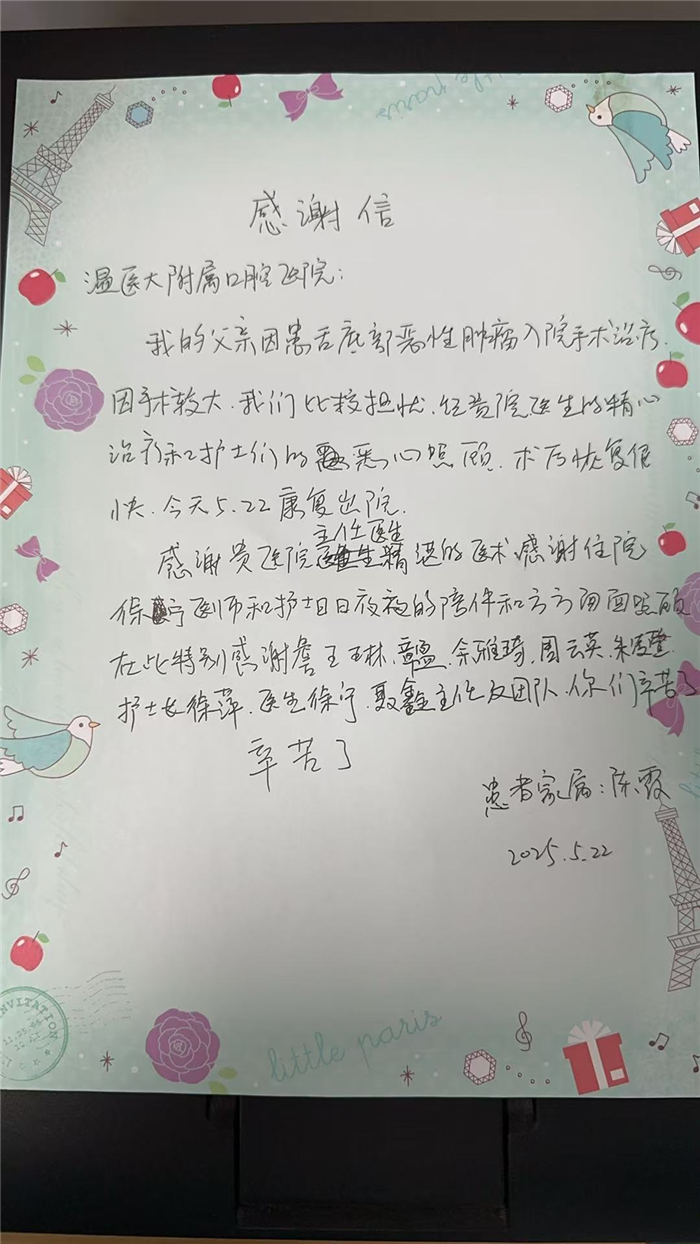 little paris
感谢信
温医大附属口腔医院:
我的父亲因患舌底部恶性肿瘤入院手术治疗.
因手术较大.我们比较担忧.经贵院医生的精心
治疗和护士们的悉心照顾.术后恢复很
快.今天5.22康复出院.
主任医生
感谢贵医院精湛的医术.感谢住院
徐宁医师和护士日日夜夜的陪伴和方方面面照顾
在此特别感谢詹王林.章 余雅琦.周云英.朱
护士长徐萍.医生徐宁.聂鑫主任及团队.你们辛苦了
辛苦了
患者家属:陈霞
2025.5.22
INVITATION
little paris